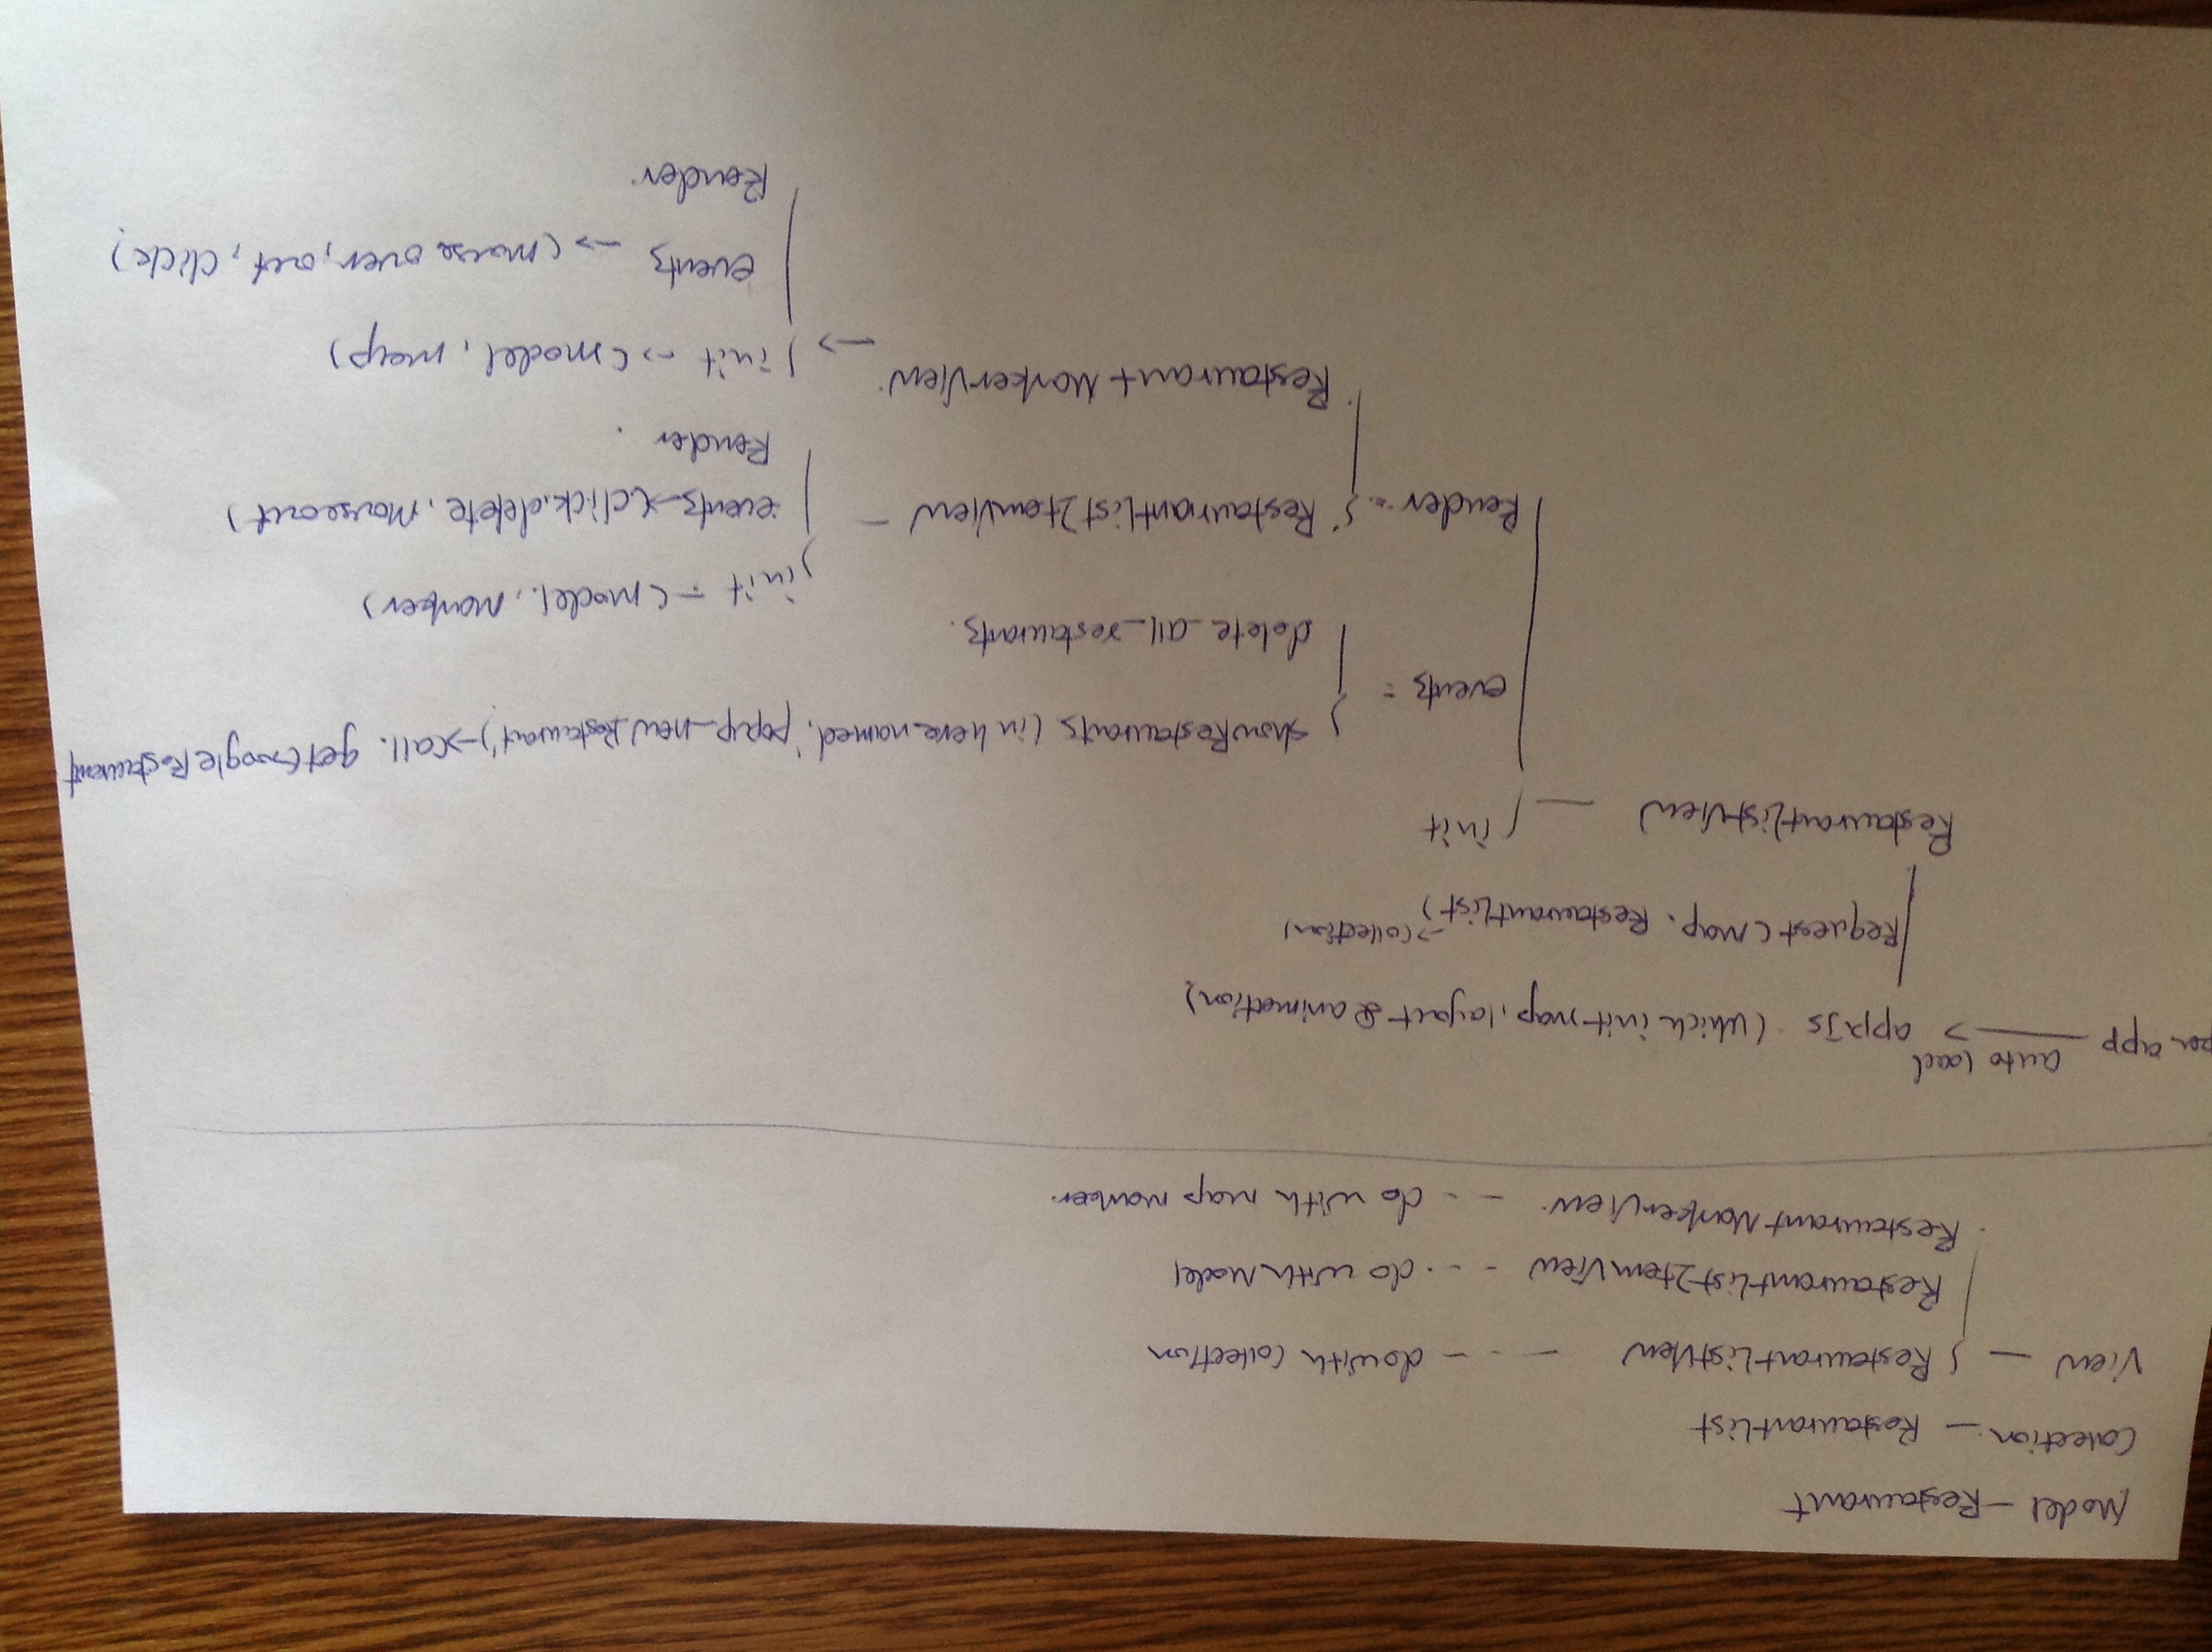 Model - Restaurant
Collection - RestaurantList
View - { RestaurantListView - - - do with collection
RestaurantListItemView - - - do with Model
RestaurantMarkerView - - do with map marker.
app auto load → appJs (which init map, layout & animation)
Request (Map, RestaurantList) → collection)
RestaurantListView - { init
events = { showRestaurants (in here named, 'popup_new_Restaurant') → call. getGoogleRestaurant
delete_all_restaurants.
Render - { RestaurantListItemView - { init - (model, Marker)
events → (click, delete, Mouseout)
Render.
RestaurantMarkerView → { init → (model, map)
events → (mouse over, out, click)
Render.